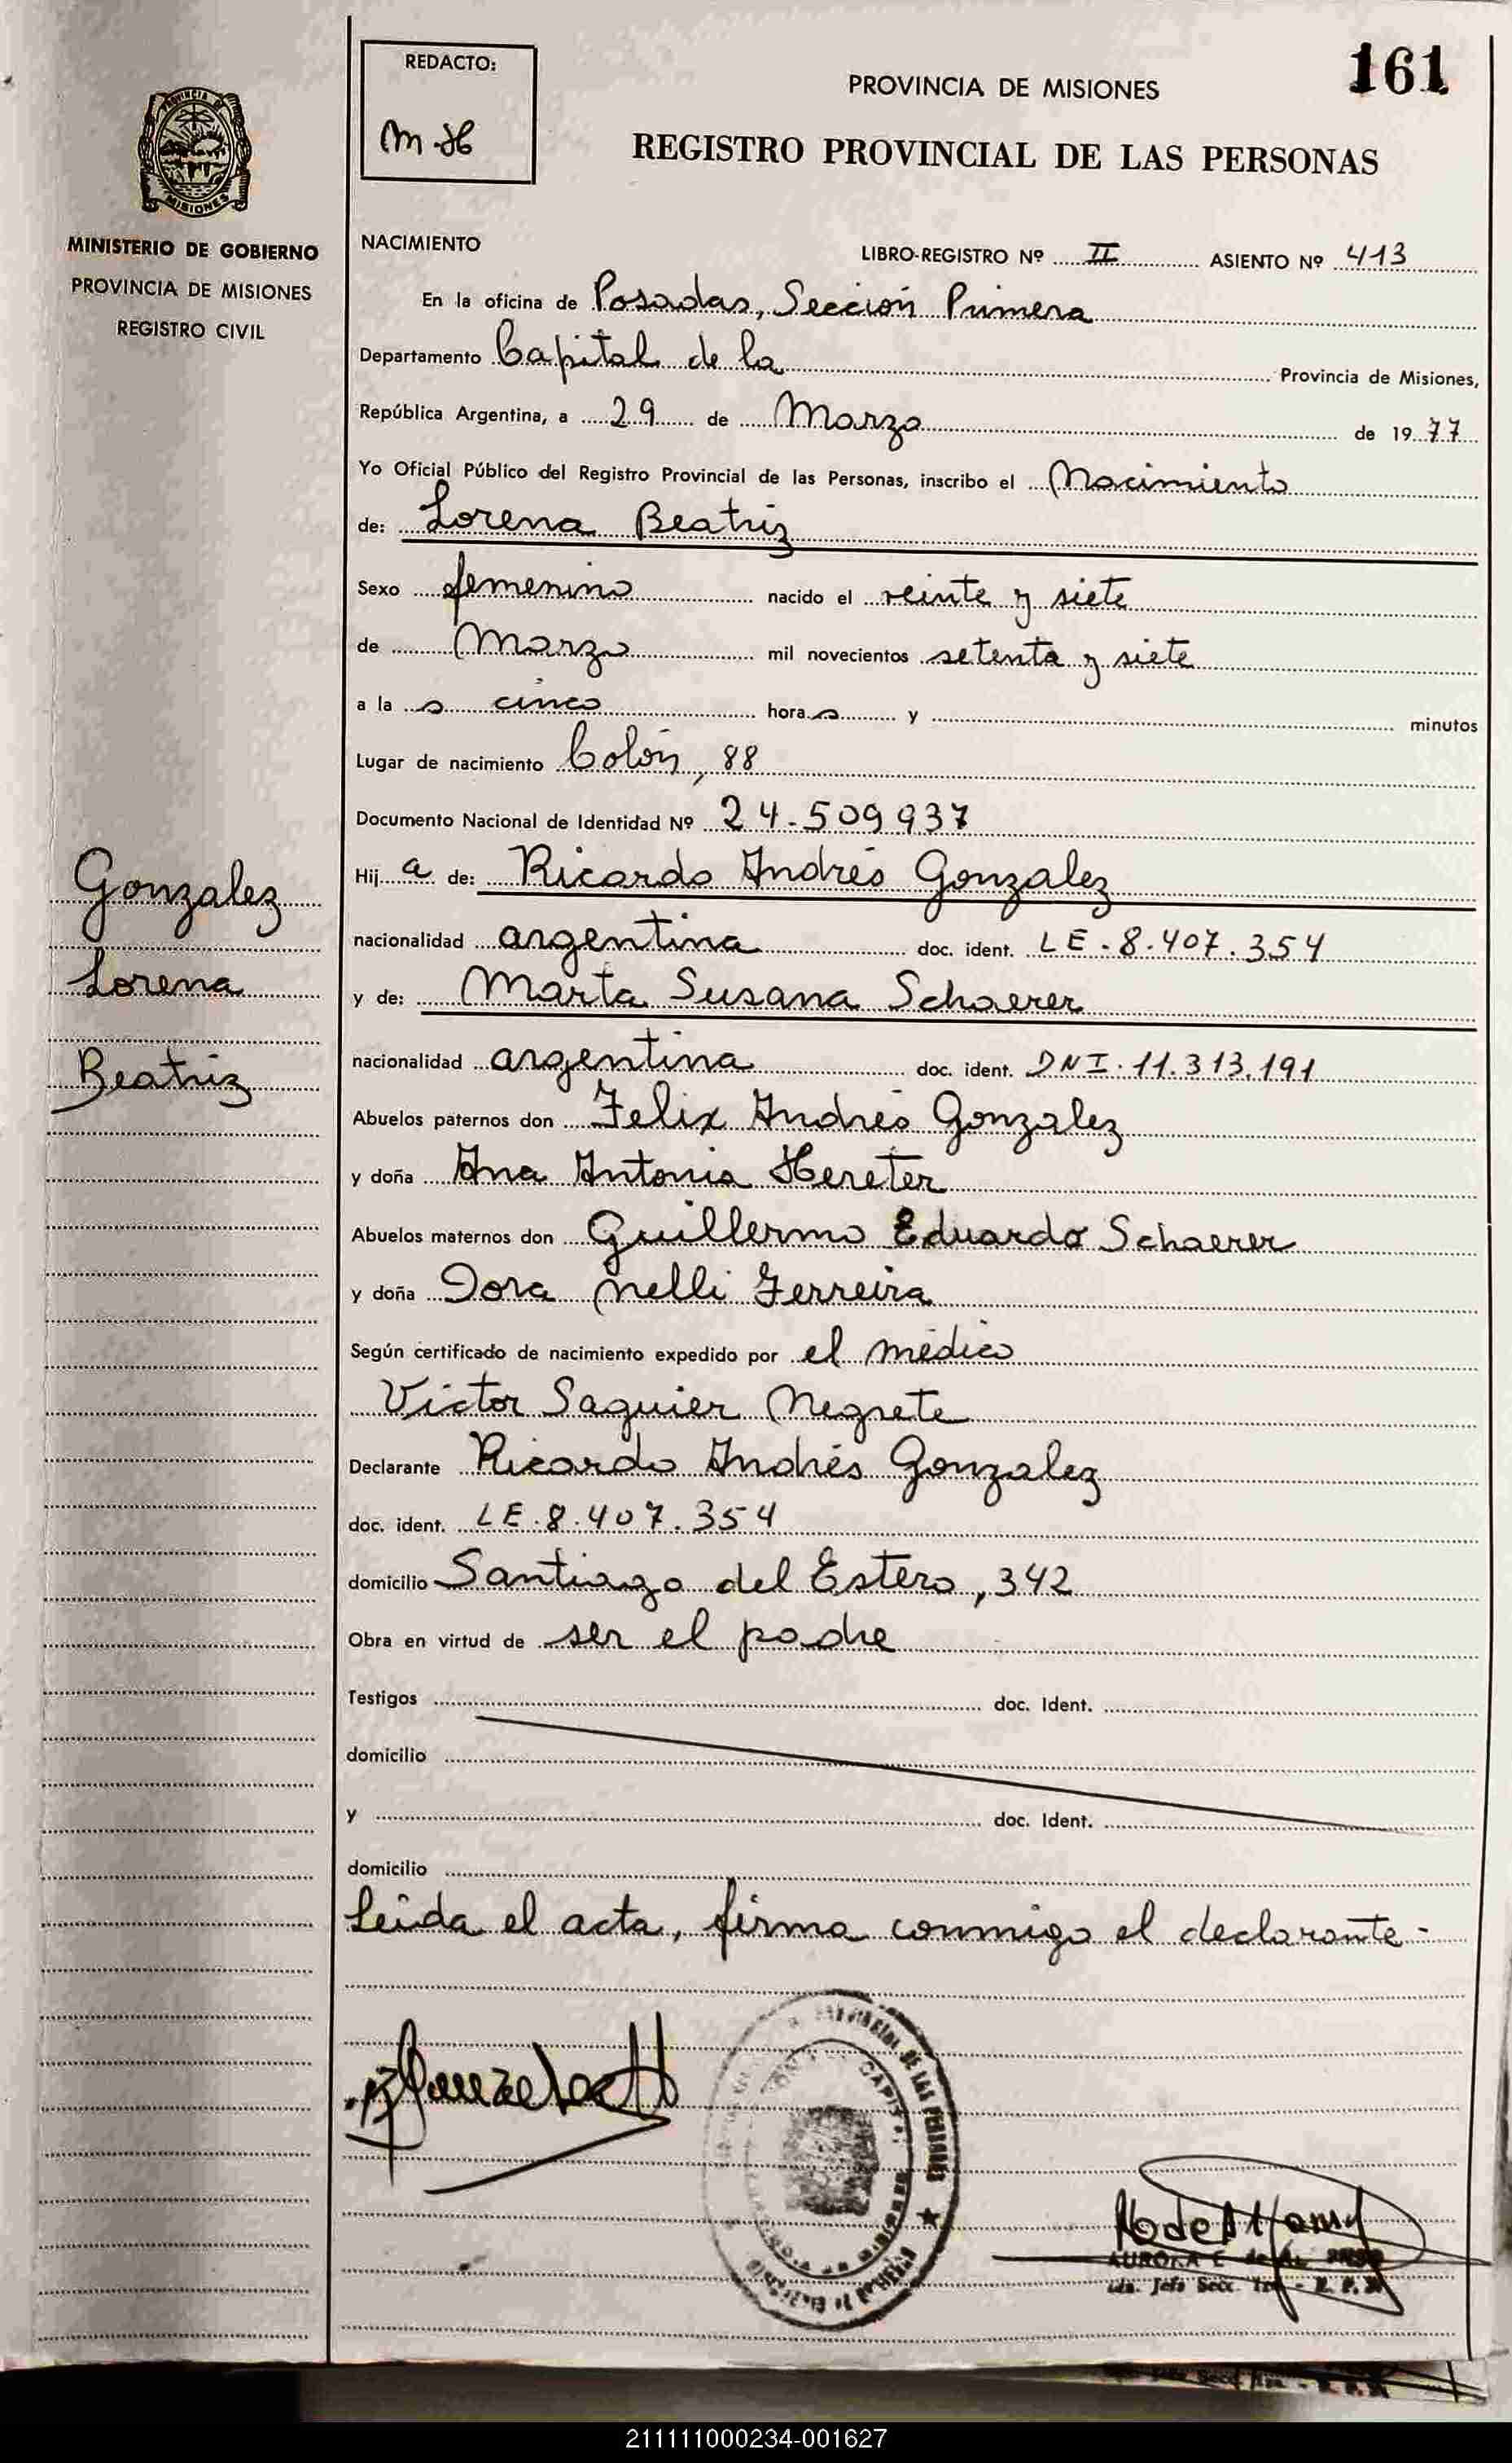 REDACTO:
PROVINCIA DE MISIONES
161
REGISTRO PROVINCIAL DE LAS PERSONAS
MISIONES
MINISTERIO DE GOBIERNO
PROVINCIA DE MISIONES
REGISTRO CIVIL
NACIMIENTO LIBRO-REGISTRO Nº II ASIENTO Nº 413
En la oficina de Posadas, Sección Primera
Departamento Capital de la Provincia de Misiones,
República Argentina, a 29 de Marzo de 1977
Yo Oficial Público del Registro Provincial de las Personas, inscribo el Nacimiento
de: Lorena Beatriz
Sexo femenino nacido el veinte y siete
de Marzo mil novecientos setenta y siete
a la s cinco hora s y minutos
Lugar de nacimiento Colón, 88
Documento Nacional de Identidad Nº 24-509937
Gonzalez
Lorena
Beatriz
Hij a de: Ricardo Andrés Gonzalez
nacionalidad argentina doc. ident. LE.8.407.354
y de: Marta Susana Schaerer
nacionalidad argentina doc. ident. DNI.11.313.191
Abuelos paternos don Felix Andrés Gonzalez
y doña Ana Antonia Hereter
Abuelos maternos don Guillermo Eduardo Schaerer
y doña Dora Nelli Ferreira
Según certificado de nacimiento expedido por el médico
Victor Saguier Negrete
Declarante Ricardo Andrés Gonzalez
doc. ident. LE.8.407.354
domicilio Santiago del Estero, 342
Obra en virtud de ser el padre
Testigos doc. Ident.
domicilio
y doc. Ident.
domicilio
Leida el acta, firma conmigo el declarante-
DE LAS PERSONAS
AURORA
Jefa Secc.
211111000234-001627